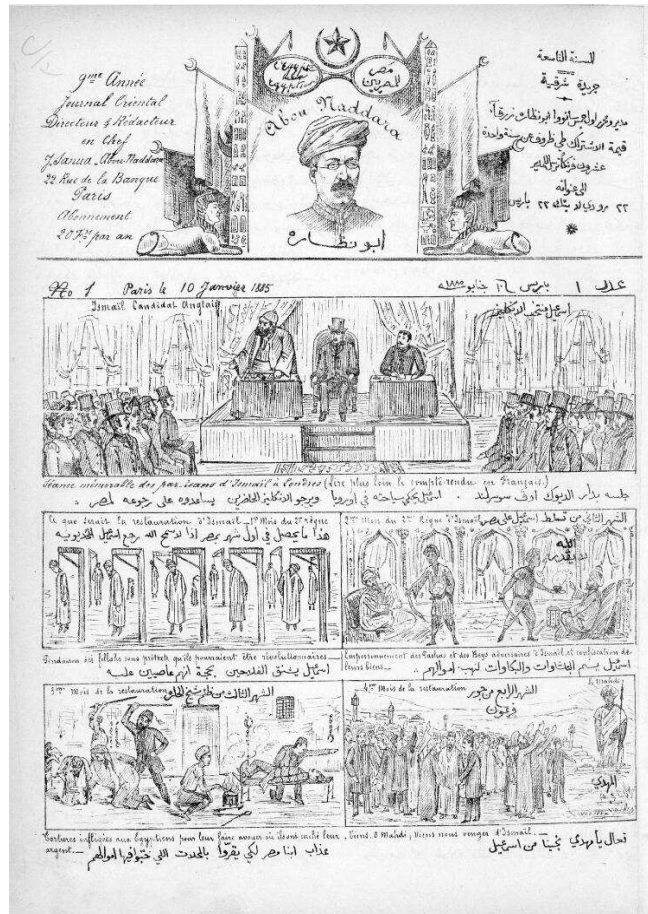 9me Année
Journal Oriental
Directeur & Rédacteur
en Chef
J. Sanua Abou Naddara
22 Rue de la Banque
Paris
Abonnement
20 Frs par an
مصر
للمصريين
Abou Naddara
أبو نظارة
السنة التاسعة
جريدة شرقية
٢٢ باريس
No 1 Paris le 10 Janvier 1885
عدد ١ باريس ١٠ جنايو ١٨٨٥
Ismail Candidat Anglais
اسمعيل منتخب الانكليز
Séance mémorable des partisans d'Ismail à Londres (Lire plus loin le compte-rendu en Français.)
جلسه بدار الديوك اوف سوسرلند . اسمعيل يحكي سياحته في أوروبا ويرجو الانكليز الحاضرين يساعدوه على رجوعه لمصر
Ce que serait la restauration d'Ismail _ 1er Mois du 2e règne
هذا ما يحصل في أول شهر بمصر اذا لا سمح الله رجع اسمعيل الخديوية
Pendaison des fellahs sous prétexte qu'ils pourraient être révolutionnaires
اسمعيل يشنق الفلاحين بحجة انهم عاصيين عليه
2me Mois du 2me Règne d'Ismail
الشهر الثاني من تسلط اسمعيل على مصر
الله
لا يقدر
Empoisonnement des Pachas et des Beys adversaires d'Ismail et confiscation de
leurs biens _
اسمعيل يسم الباشاوات والبكاوات لنهب اموالهم
3me Mois de la restauration
الشهر الثالث من ظلم شيخ الحارة
Tortures infligées aux Egyptiens pour leur faire avouer où ils ont caché leur
argent. _
عذاب ابنا مصر لكي يقروا بالمحلات اللي خبوا فيها اموالهم
4me Mois de la restauration
الشهر الرابع من جور
فرعون
Le Mahdi
المهدي
Viens, O Mahdi, Viens nous venger d'Ismail _
تعال يا مهدي نجينا من اسمعيل